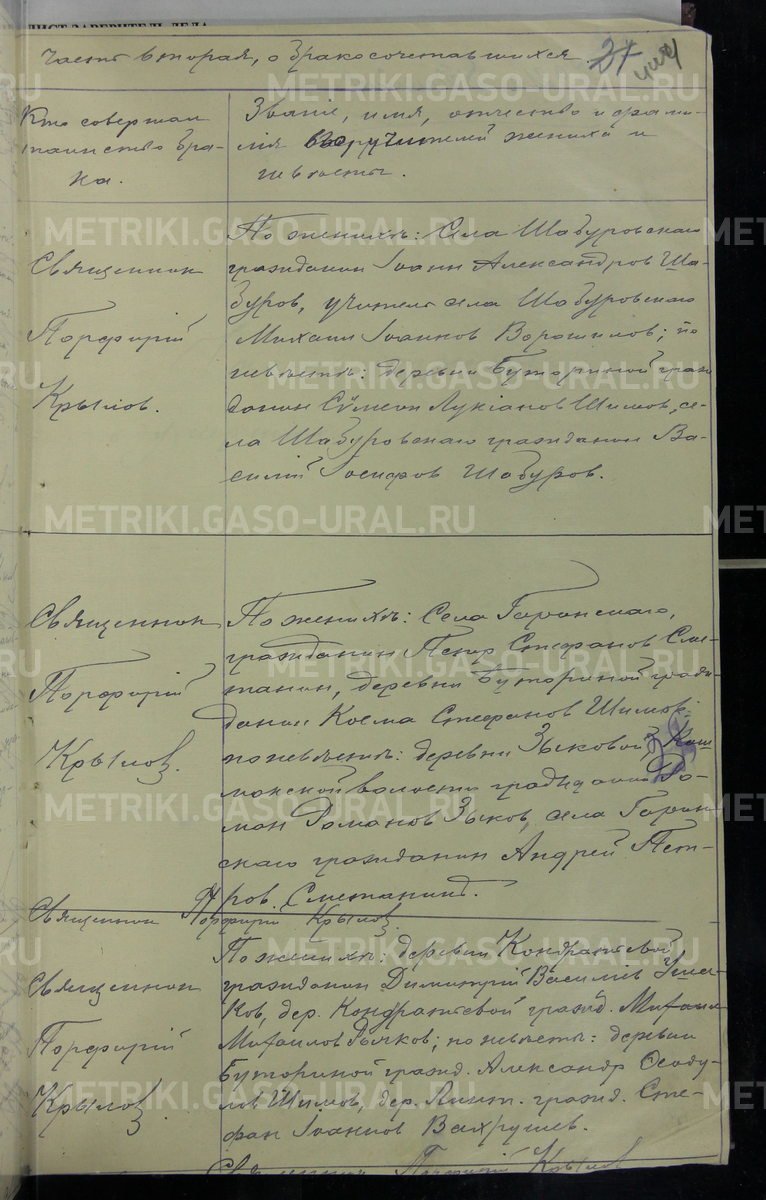 Часть вторая, о бракосочетавшихся. 21
Кто совершал
таинство бра-
ка.
Званiе, имя, отчество и фами-
лiя поручителей жениха и
невесты.
Священник
Порфирiй
Крылов.
По женихѣ: Села Шабуровскаго
гражданин Iоанн Александров Ша-
буров, учитель села Шабуровскаго
Михаил Iоаннов Ворошилов; по
невѣстѣ: деревни Буториной граж
данин Сѵмеон Лукiанов Шимов, се-
ла Шабуровскаго гражданин Ва-
силiй Iосифов Шабуров.
Священник
Порфирiй
Крылов.
По женихѣ: Села Горинскаго,
гражданин Петр Стефанов Сме-
танин, деревни Буториной граж-
данин Косма Стефанов Шимов;
по невѣстѣ: деревни Зыковой,
волости гражданин Ро-
ман Романов Зыков, села Горин
скаго гражданин Андрей Пет-
ров Сметанинъ.
Священник Порфирiй Крылов.
Священник
Порфирiй
Крылов.
По женихѣ: деревни Кондратьевой
гражданин Димитрiй Василiев Уша-
ков, дер. Кондратьевой гражд. Михаил
Михаилов Рычков; по невѣстѣ: деревни
Буториной гражд. Александр
Шимов, дер. гражд. Сте-
фан Iоаннов Вахрушев.
Священник Порфирiй Крылов
METRIKI.GASO-URAL.RU